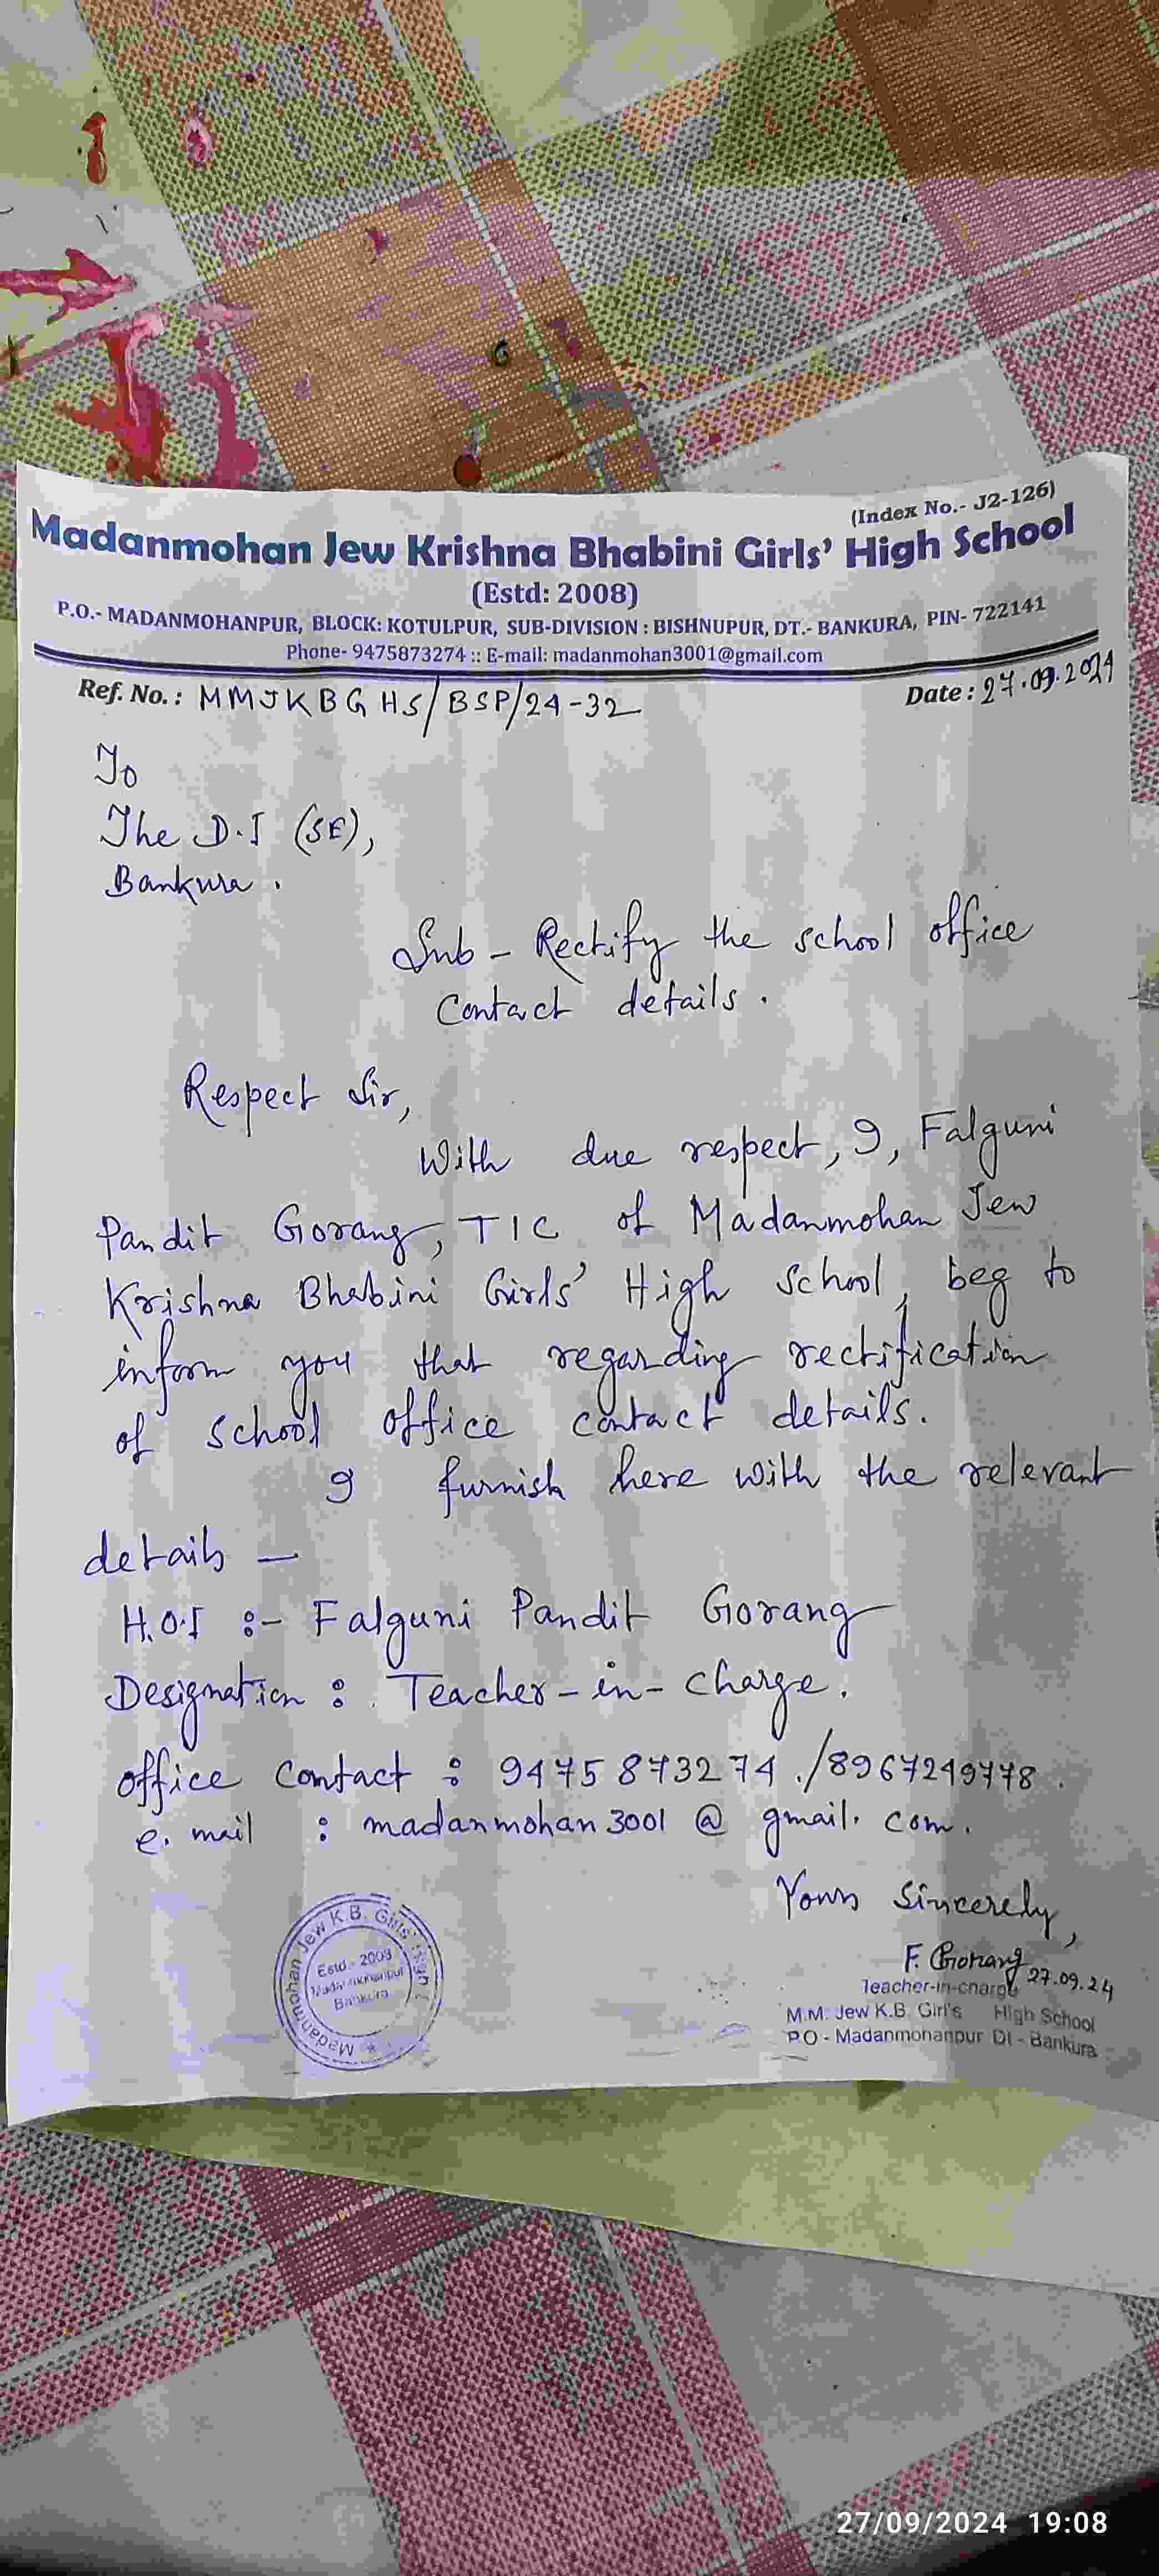 (Index No.- J2-126)
Madanmohan Jew Krishna Bhabini Girls' High School
(Estd: 2008)
P.O.- MADANMOHANPUR, BLOCK: KOTULPUR, SUB-DIVISION : BISHNUPUR, DT.- BANKURA, PIN- 722141
Phone- 9475873274 :: E-mail: madanmohan3001@gmail.com
Ref. No. : MMJKBGHS/BSP/24-32
Date : 27.09.2024
To
The D.I (SE),
Bankura.
Sub - Rectify the school office
contact details.
Respect Sir,
With due respect, I, Falguni
Pandit Gorang, TIC of Madanmohan Jew
Krishna Bhabini Girls' High School, beg to
inform you that regarding rectification
of school office contact details.
I furnish here with the relevant
details —
H.O.I :- Falguni Pandit Gorang
Designation : Teacher-in-charge.
office contact : 9475873274./8967249778.
e.mail : madanmohan3001@gmail.com.
Yours Sincerely,
F. Gorang 27.09.24
Teacher-in-charge
M.M. Jew K.B. Girl's High School
P.O - Madanmohanpur Dt - Bankura
Madanmohan Jew K.B. Girls' High
Estd.- 2008
Bankura
27/09/2024 19:08